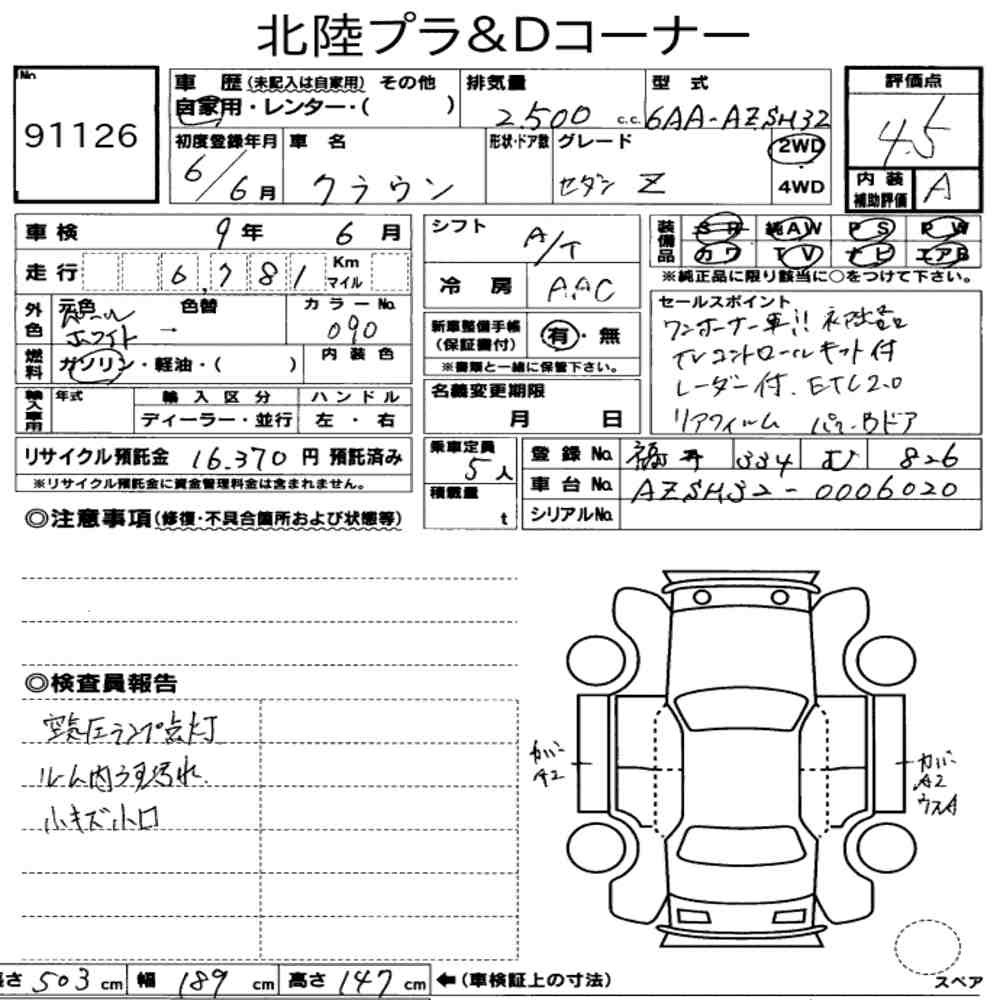 北陸プラ&Dコーナー
No.
91126
車歴(未記入は自家用) その他
自家用・レンター・( )
排気量
2.500 c.c.
型式
6AA-AZSH32
評価点
4.5
初度登録年月
6/6月
車名
クラウン
形状・ドア数
グレード
セダン Z
2WD
・
4WD
内装
補助評価
A
車検 9年 6月
走行 6,781 Km
マイル
外色
元色
パール
ホワイト →
色替
カラーNo.
090
燃料
ガソリン・軽油・( )
内装色
輸入車用
年式
輸入区分
ディーラー・並行
ハンドル
左・右
リサイクル預託金 16.370 円 預託済み
※リサイクル預託金に資金管理料金は含まれません。
シフト
A/T
冷房
AAC
新車整備手帳
(保証書付)
有・無
※書類と一緒に保管下さい。
名義変更期限
月 日
乗車定員
5人
積載量
t
装備品
SH 純AW PS PW
カワ TV ナビ エアB
※純正品に限り該当に○をつけて下さい。
セールスポイント
ワンオーナー車!!
TVコントロールキット付
レーダー付. ETC2.0
リアフィルム パワーBドア
登録No. 福井 334 む 826
車台No. AZSH32-0006020
シリアルNo.
◎注意事項(修復・不具合箇所および状態等)
◎検査員報告
空気圧ランプ点灯
ルーム内うす汚れ.
小キズ小凹
カバー
A2
カバー
A2
ウスA
長さ 503 cm 幅 189 cm 高さ 147 cm ←(車検証上の寸法)
スペア